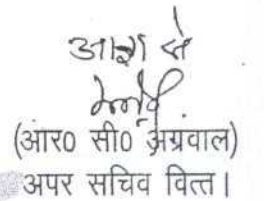 आज्ञा से
(आर० सी० अग्रवाल)
अपर सचिव वित्त।